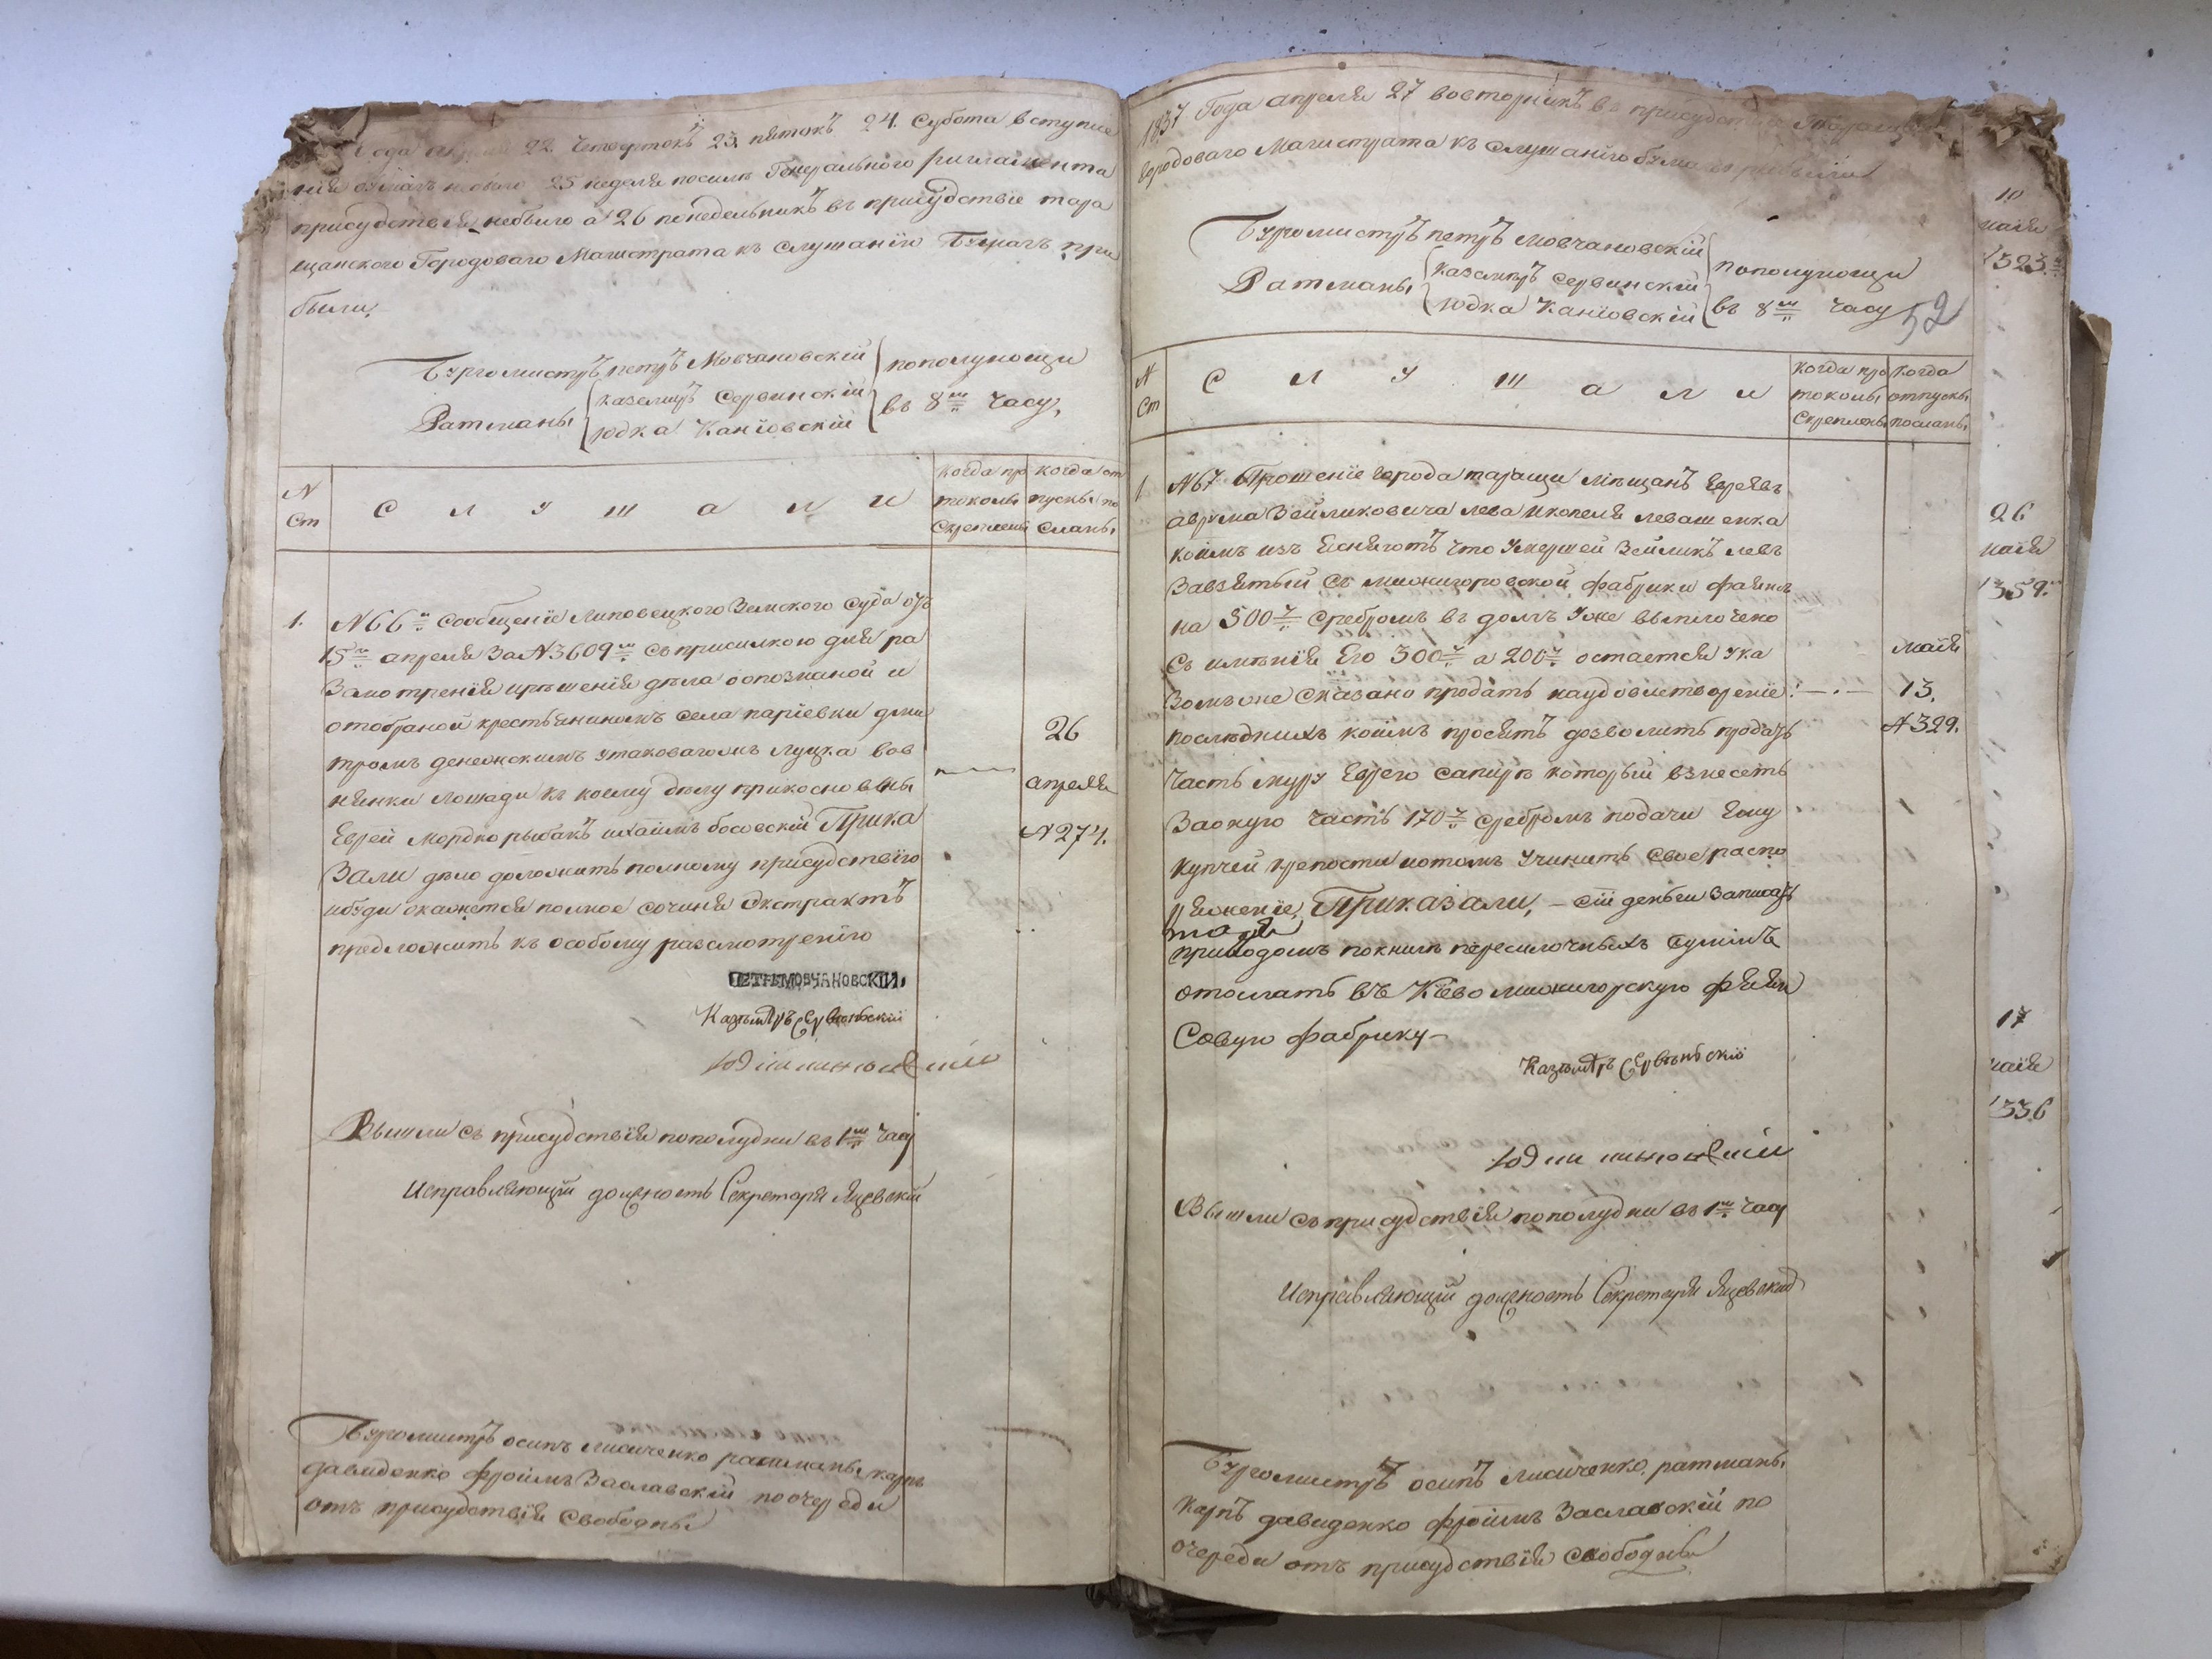 года апреля 22. Четвертокъ 23. пятокъ 24. Субота вступле
нія бумагъ небыло 25 неделя посилѣ Генеральнаго регламента
присудствія небыло а 26 понедельникъ въ присудствіе тара
щанского Городоваго Магистрата къ слушанію Бумагъ при
были.
Бургомистръ петръ Мовчановскій
Ратманы
казимиръ Сервинскій
юдка Каніовскій
пополуночи
въ 8м часу,
N
Ст
С л у ш а л и
когда про
токолы
Скреплены
когда от
пуски по
сланы,
1.
N 66й Сообщеніе Липовецкого Земского Суда отъ
15го апреля За N 3609м съ присилкою для ра
Змотренія ирѣшенія дѣла оопознаной и
отобраной крестьяниномъ села паріевки дми
тромъ денеонскимъ утаковагомъ луцка вов
нянки лошади къ коему дѣлу прикосновены
Еврей Мордко рыбакъ ихаимъ босовскій Прика
Зали дѣло доложить полному присудствію
ибуди окажется полное сочиня Экстрактъ
предложить къ особому разсмотренію
26
апреля
N 274.
ПЕТРЪ МОВЧАНОВСКІЙ.
Казимѣръ Сервѣньскій
Вышли съ присудствія пополудни въ 1м часу
Исправляющій должность Секретаря Яцевскій
Бургомистръ осипъ лисиченко ратманы карпъ
давиденко фроимъ Заславскій по очереди
отъ присудствія Свободны
1837 Года апреля 27 вовторникъ въ присудствіе Таращанского
Городоваго Магистрата къ слушанію бумагъ прибыли
Бургомистръ петръ мовчановскій
Ратманы
казимиръ Сервинскій
юдка Каніовскій
пополуночи
въ 8м часу
52
N
Ст
С л у ш а л и
Когда про
токолы
Скреплены
Когда
отпуски
посланы,
1
N 67 Прошеніе города таращи мѣщанъ Евреевъ
аврума Зейликовича лева икопеля левашенка
коимъ изъ Ясняютъ что умершей Зейликъ левъ
Завзятый съ межигоровской фабрики фаянсъ
на 500 р Сребромъ въ долгъ уже выплочено
Съ имѣнія Его 300 р а 200 р остается ука
Зомъ оне сказано продать наудовлетвореніе
последнихъ коимъ просятъ дозволить продать
Часть муру Еврею сапиръ который взнесетъ
Заоную Часть 170 р Сребромъ подачи Ему
купчей крепости ипотомъ учинить свое распо
ряженіе, Приказали, — сіи деньги Записать
приходомъ покниге пересилочныхъ Суммъ
отослать въ Кіево межигорскую фаян
Совую фабрику —
мая
13.
N 329.
Казимѣръ Сервѣньскій
Вышли съ присудствія пополудни въ 1м часу
Исправляющій должность Секретаря Яцевскій
Бургомистръ осипъ лисиченко, ратманы,
карпъ давиденко фроимъ Заславскій по
очереди отъ присудствія свободны
10
маія
26
маія
17
маія